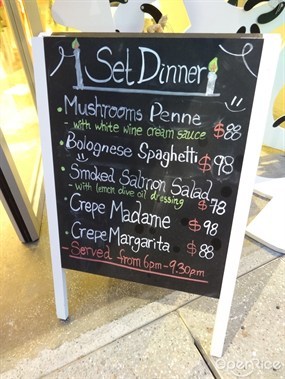 Set Dinner
Mushrooms Penne
- with white wine cream sauce $88
Bolognese Spaghetti $98
Smoked Salmon Salad
- with lemon olive oil dressing $78
Crepe Madame $98
Crepe Margarita $88
- Served from 6pm - 9:30pm
OpenRice